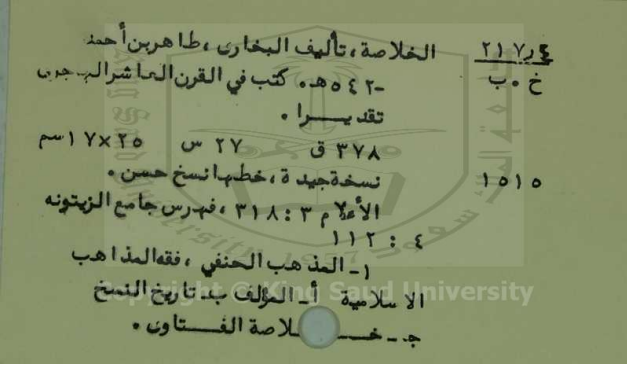 ٢١٧ر٤ الخلاصة، تأليف البخارى، طاهر بن أحمد
خ ٠ ب -٥٤٢هـ٠ كتب في القرن العاشر الهجرى
تقديرا ٠
٣٧٨ ق ٢٧ س ٢٥×١٧سم
١٥١٥ نسخة جيدة، خطها نسخ حسن ٠
الأعلام ٣ : ٣١٨، فهرس جامع الزيتونه
٤ : ١١٢
١- المذهب الحنفي، فقه المذاهب
الاسلامية أ- المؤلف ب- تاريخ النسخ
جـ - خلاصة الفتاوى ٠
Copyright © King Saud University